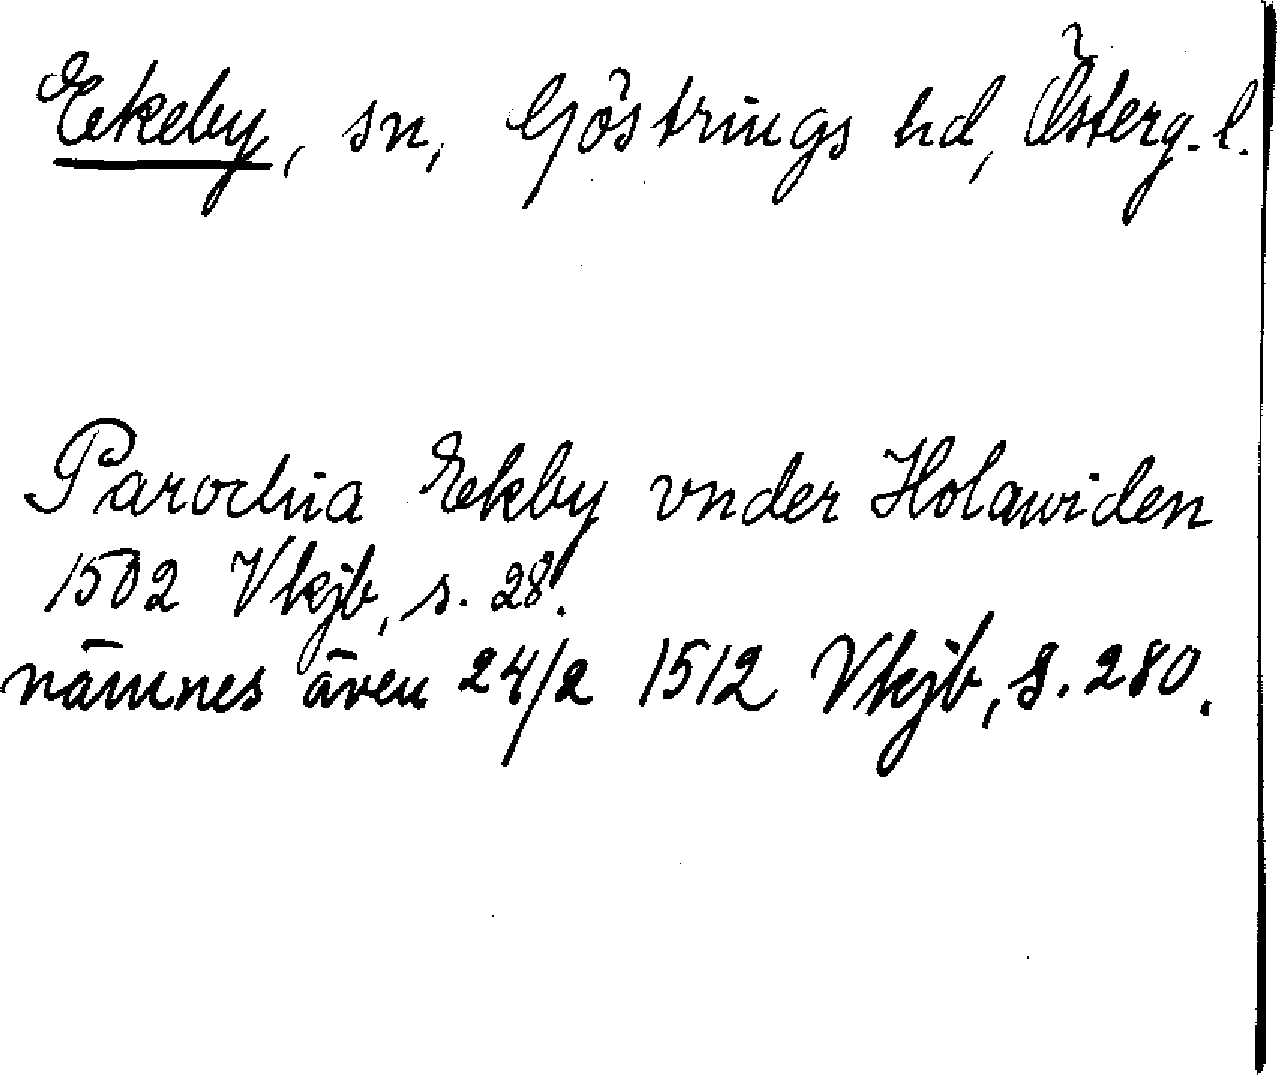 Ekeby, sn, Göstrings hd, Österg. l.
Parochia Ekby vnder Holawiden
1502 Vkjb, s. 28.
nämnes även 24/2 1512 Vkjb, s. 280.